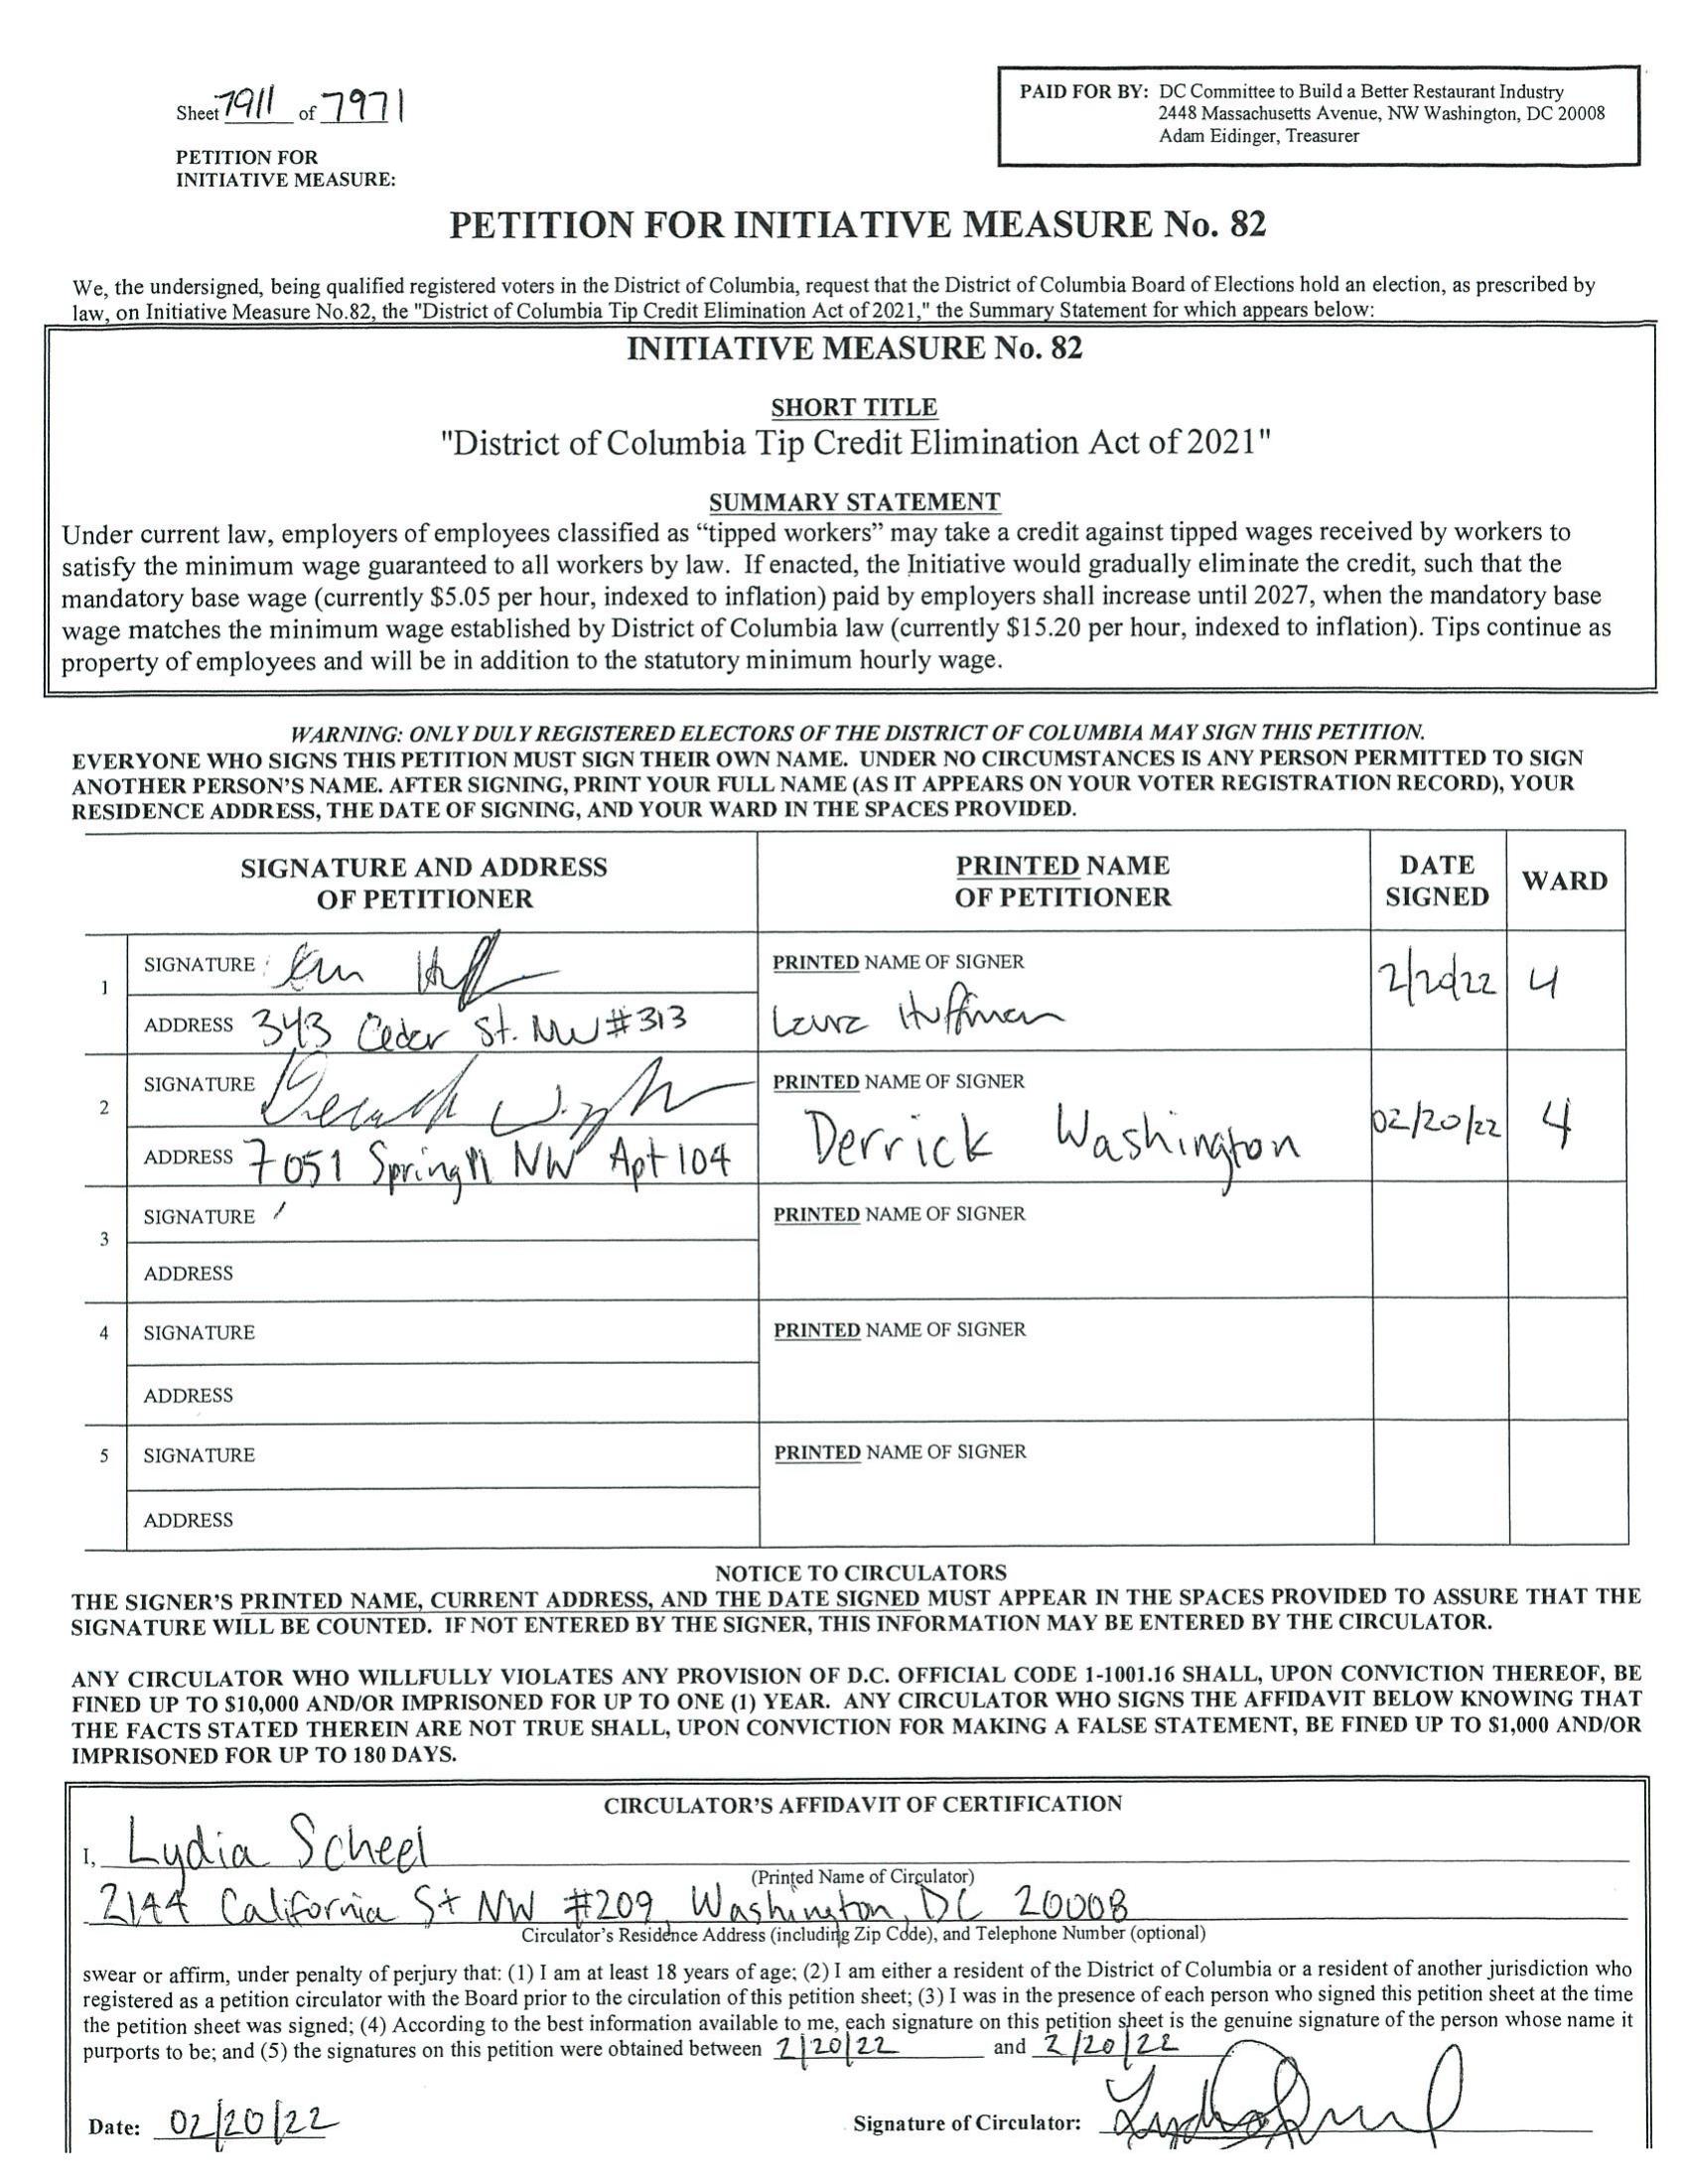 Sheet 7911 of 7971
PAID FOR BY: DC Committee to Build a Better Restaurant Industry
2448 Massachusetts Avenue, NW Washington, DC 20008
Adam Eidinger, Treasurer
PETITION FOR
INITIATIVE MEASURE:
PETITION FOR INITIATIVE MEASURE No. 82
We, the undersigned, being qualified registered voters in the District of Columbia, request that the District of Columbia Board of Elections hold an election, as prescribed by
law, on Initiative Measure No.82, the "District of Columbia Tip Credit Elimination Act of 2021," the Summary Statement for which appears below:
INITIATIVE MEASURE No. 82
SHORT TITLE
"District of Columbia Tip Credit Elimination Act of 2021"
SUMMARY STATEMENT
Under current law, employers of employees classified as “tipped workers” may take a credit against tipped wages received by workers to
satisfy the minimum wage guaranteed to all workers by law. If enacted, the Initiative would gradually eliminate the credit, such that the
mandatory base wage (currently $5.05 per hour, indexed to inflation) paid by employers shall increase until 2027, when the mandatory base
wage matches the minimum wage established by District of Columbia law (currently $15.20 per hour, indexed to inflation). Tips continue as
property of employees and will be in addition to the statutory minimum hourly wage.
WARNING: ONLY DULY REGISTERED ELECTORS OF THE DISTRICT OF COLUMBIA MAY SIGN THIS PETITION.
EVERYONE WHO SIGNS THIS PETITION MUST SIGN THEIR OWN NAME. UNDER NO CIRCUMSTANCES IS ANY PERSON PERMITTED TO SIGN
ANOTHER PERSON'S NAME. AFTER SIGNING, PRINT YOUR FULL NAME (AS IT APPEARS ON YOUR VOTER REGISTRATION RECORD), YOUR
RESIDENCE ADDRESS, THE DATE OF SIGNING, AND YOUR WARD IN THE SPACES PROVIDED.
SIGNATURE AND ADDRESS
OF PETITIONER
PRINTED NAME
OF PETITIONER
DATE
SIGNED
WARD
1
SIGNATURE
ADDRESS 343 Cedar St. NW #313
PRINTED NAME OF SIGNER
Laura Huffman
2/20/22
4
2
SIGNATURE
ADDRESS 7051 Spring Pl NW Apt 104
PRINTED NAME OF SIGNER
Derrick Washington
02/20/22
4
3
SIGNATURE
ADDRESS
PRINTED NAME OF SIGNER
4
SIGNATURE
ADDRESS
PRINTED NAME OF SIGNER
5
SIGNATURE
ADDRESS
PRINTED NAME OF SIGNER
NOTICE TO CIRCULATORS
THE SIGNER'S PRINTED NAME, CURRENT ADDRESS, AND THE DATE SIGNED MUST APPEAR IN THE SPACES PROVIDED TO ASSURE THAT THE
SIGNATURE WILL BE COUNTED. IF NOT ENTERED BY THE SIGNER, THIS INFORMATION MAY BE ENTERED BY THE CIRCULATOR.
ANY CIRCULATOR WHO WILLFULLY VIOLATES ANY PROVISION OF D.C. OFFICIAL CODE 1-1001.16 SHALL, UPON CONVICTION THEREOF, BE
FINED UP TO $10,000 AND/OR IMPRISONED FOR UP TO ONE (1) YEAR. ANY CIRCULATOR WHO SIGNS THE AFFIDAVIT BELOW KNOWING THAT
THE FACTS STATED THEREIN ARE NOT TRUE SHALL, UPON CONVICTION FOR MAKING A FALSE STATEMENT, BE FINED UP TO $1,000 AND/OR
IMPRISONED FOR UP TO 180 DAYS.
CIRCULATOR'S AFFIDAVIT OF CERTIFICATION
I, Lydia Scheel
(Printed Name of Circulator)
2144 California St NW #209 Washington, DC 20008
Circulator's Residence Address (including Zip Code), and Telephone Number (optional)
swear or affirm, under penalty of perjury that: (1) I am at least 18 years of age; (2) I am either a resident of the District of Columbia or a resident of another jurisdiction who
registered as a petition circulator with the Board prior to the circulation of this petition sheet; (3) I was in the presence of each person who signed this petition sheet at the time
the petition sheet was signed; (4) According to the best information available to me, each signature on this petition sheet is the genuine signature of the person whose name it
purports to be; and (5) the signatures on this petition were obtained between 2/20/22 and 2/20/22
Date: 02/20/22
Signature of Circulator: